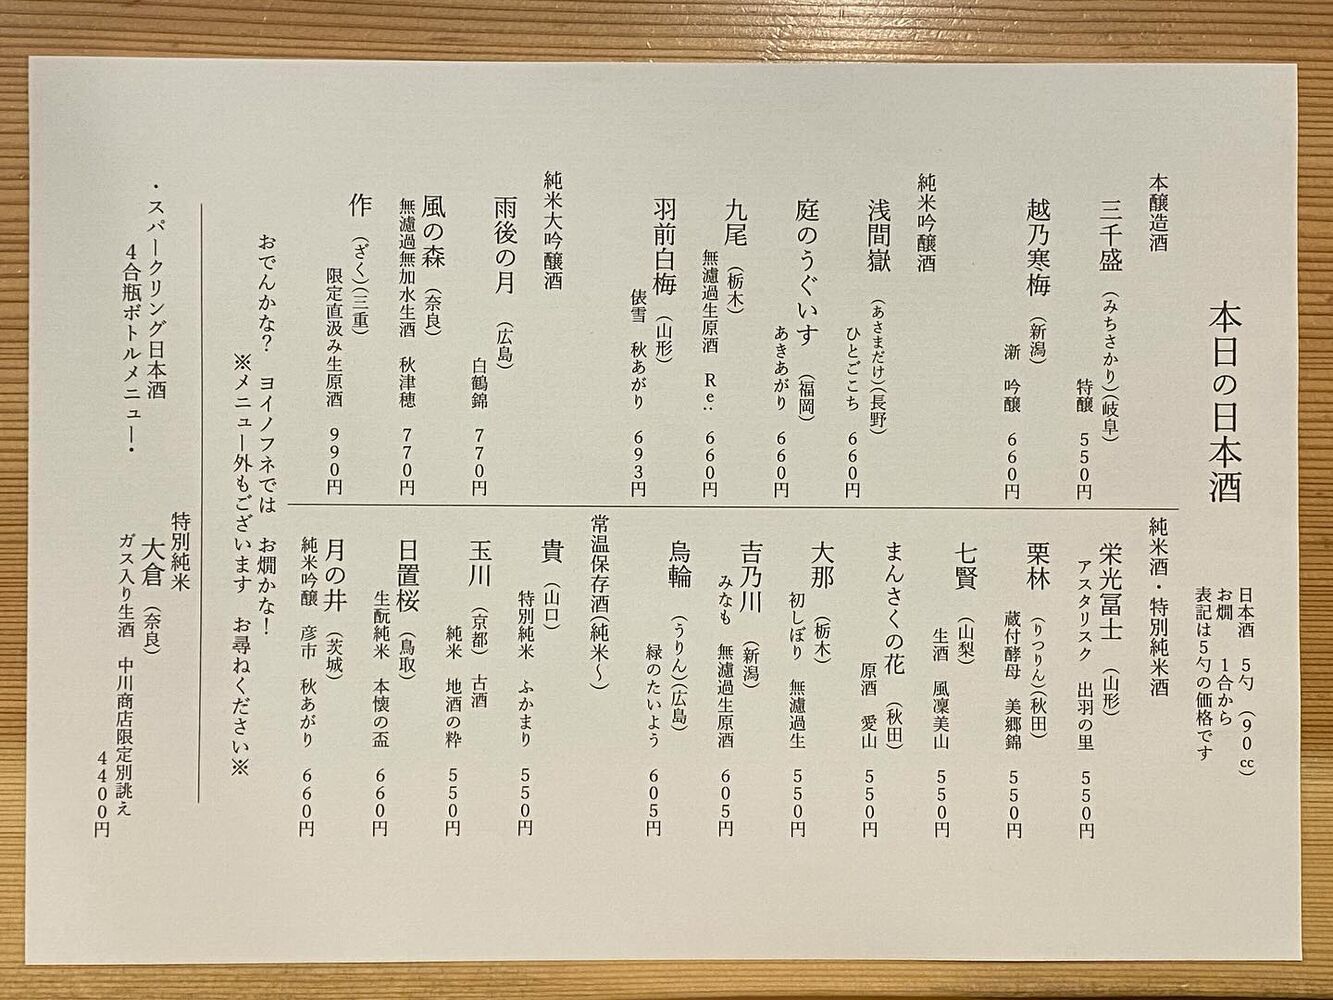 本日の日本酒
日本酒　5勺（90cc）
お燗　1合から
表記は5勺の価格です
本醸造酒
三千盛（みちさかり）（岐阜）
特醸　550円
越乃寒梅（新潟）
漸　吟醸　660円
純米吟醸酒
浅間嶽（あさまだけ）（長野）
ひとごこち　660円
庭のうぐいす（福岡）
あきあがり　660円
九尾（栃木）
無濾過生原酒　Re:　660円
羽前白梅（山形）
俵雪　秋あがり　693円
純米大吟醸酒
雨後の月（広島）
白鶴錦　770円
風の森（奈良）
無濾過無加水生酒　秋津穂　770円
作（ざく）（三重）
限定直汲み生原酒　990円
純米酒・特別純米酒
栄光冨士（山形）
アスタリスク　出羽の里　550円
栗林（りつりん）（秋田）
蔵付酵母　美郷錦　550円
七賢（山梨）
生酒　風凜美山　550円
まんさくの花（秋田）
原酒　愛山　550円
大那（栃木）
初しぼり　無濾過生　550円
吉乃川（新潟）
みなも　無濾過生原酒　605円
烏輪（うりん）（広島）
緑のたいよう　605円
常温保存酒（純米～）
貴（山口）
特別純米　ふかまり　550円
玉川（京都）古酒
純米　地酒の粋　550円
日置桜（鳥取）
生酛純米　本懐の盃　660円
月の井（茨城）
純米吟醸　彦市　秋あがり　660円
おでんかな？　ヨイノフネでは　お燗かな！
※メニュー外もございます　お尋ねください※
・スパークリング日本酒
4合瓶ボトルメニュー・
特別純米
大倉（奈良）
ガス入り生酒　中川商店限定別誂え
4400円